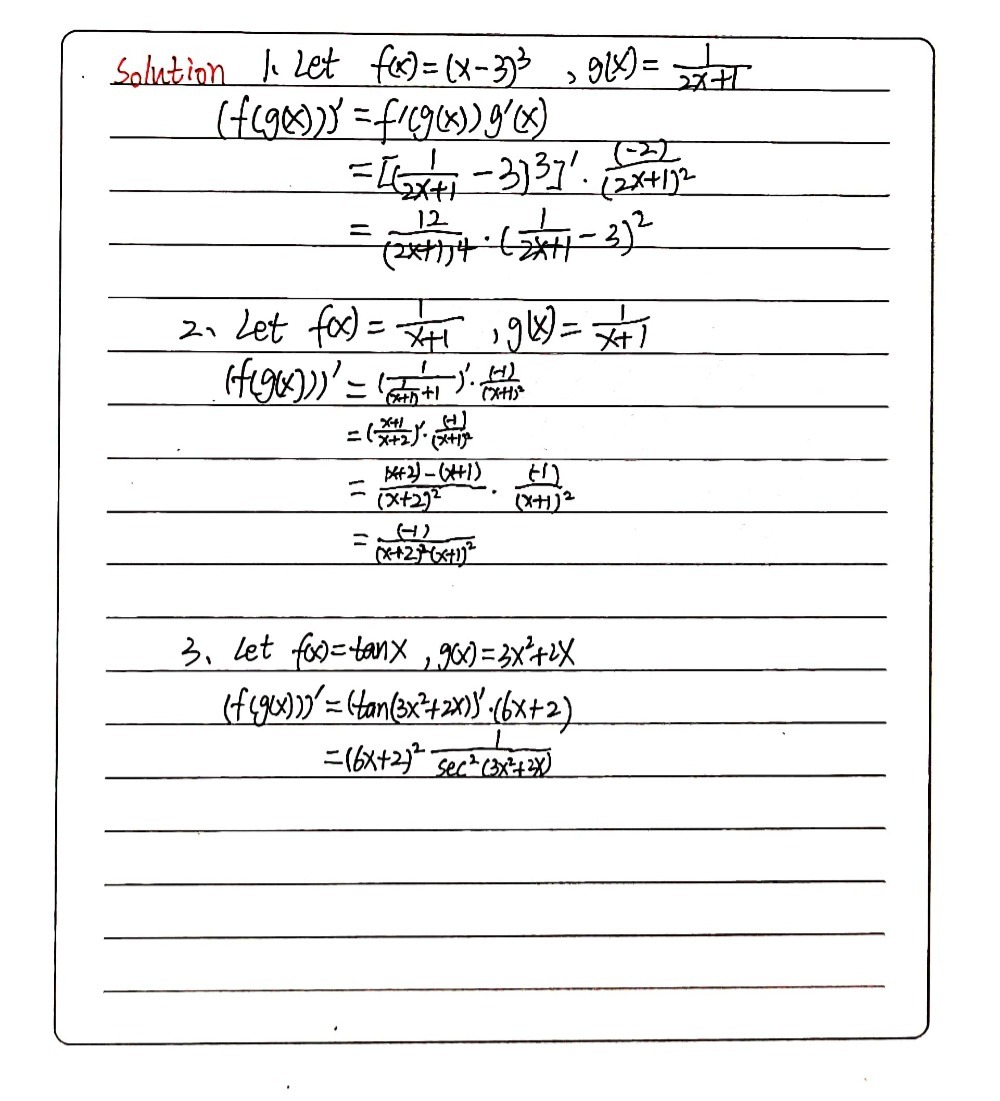 Solution 1. Let f(x) = (x-3)³ , g(x) = 1/(2x+1)
(f(g(x)))' = f'(g(x)) g'(x)
= [(1/(2x+1) - 3)³]' · (-2)/(2x+1)²
= 12/(2x+1)⁴ · (1/(2x+1) - 3)²
2、 Let f(x) = 1/(x+1) , g(x) = 1/(x+1)
(f(g(x)))' = (1/(1/(x+1) + 1))' · (-1)/(x+1)²
= ((x+1)/(x+2))' · (-1)/(x+1)²
= ((x+2) - (x+1))/(x+2)² · (-1)/(x+1)²
= (-1)/((x+2)²(x+1)²)
3、 Let f(x) = tanx , g(x) = 3x²+2x
(f(g(x)))' = (tan(3x²+2x))' · (6x+2)
= (6x+2)² 1/(sec²(3x²+2x))